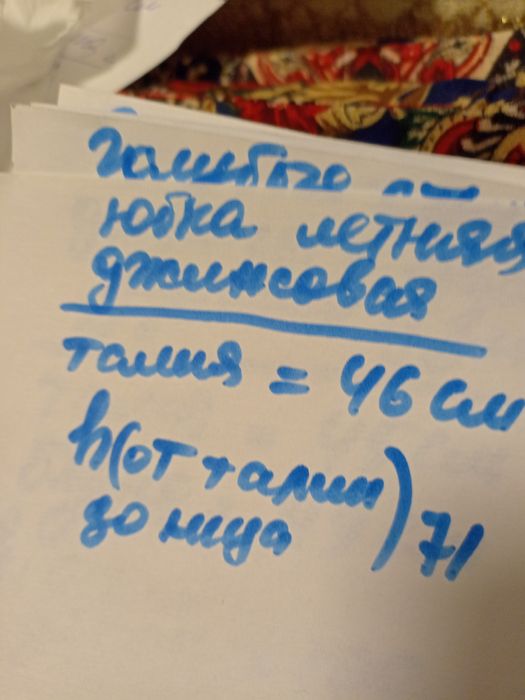 юбка летняя
джинсовая
талия = 46 см
h(от талии
до низа) 71